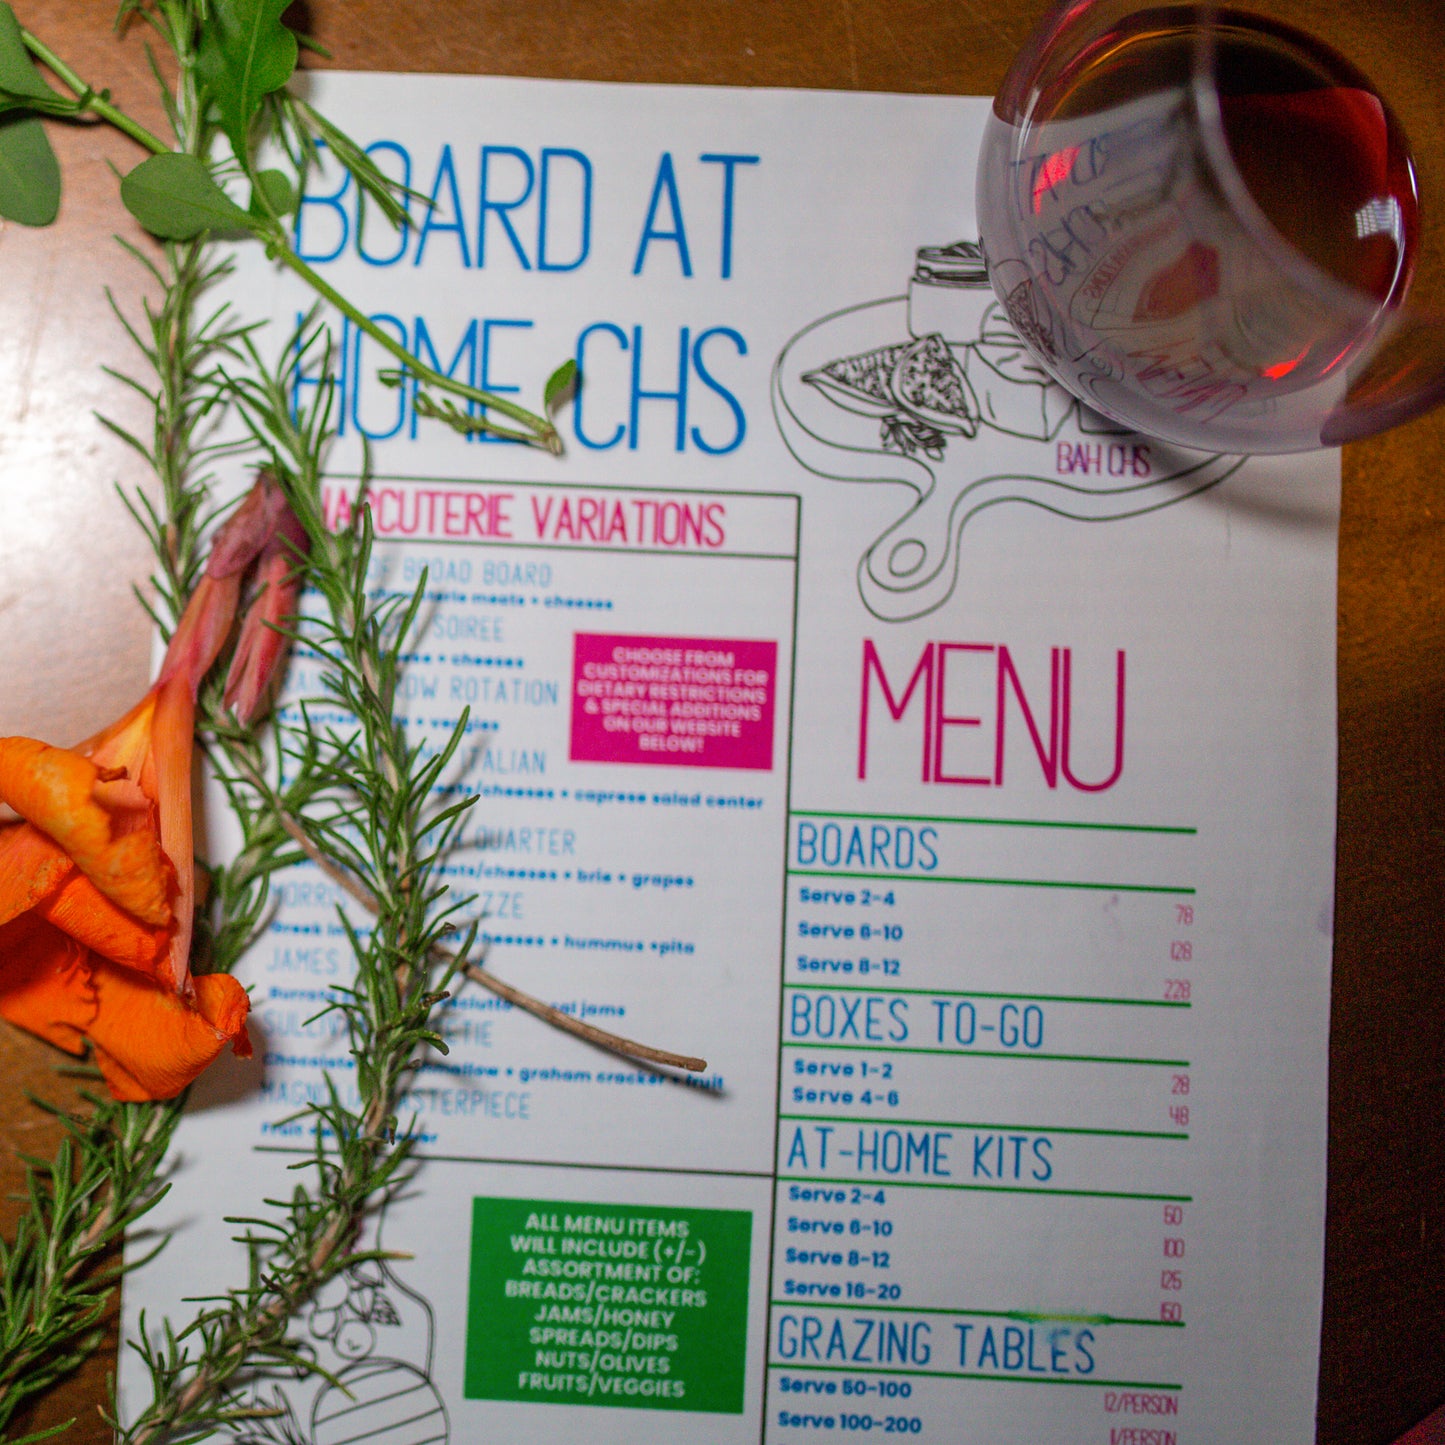 BOARD AT
HOME CHS
BAH CHS
CHARCUTERIE VARIATIONS
OF BROAD BOARD
meats • cheeses
SOIREE
• cheeses
ROW ROTATION
• veggies
ITALIAN
meats/cheeses • caprese salad center
QUARTER
meats/cheeses • brie • grapes
MORRIS MEZZE
Greek cheeses • hummus •pita
JAMES
Burrata jams
SULLIVAN
Chocolate • graham cracker • fruit
MAGNOLIA MASTERPIECE
Fruit
CHOOSE FROM
CUSTOMIZATIONS FOR
DIETARY RESTRICTIONS
& SPECIAL ADDITIONS
ON OUR WEBSITE
BELOW!
ALL MENU ITEMS
WILL INCLUDE (+/-)
ASSORTMENT OF:
BREADS/CRACKERS
JAMS/HONEY
SPREADS/DIPS
NUTS/OLIVES
FRUITS/VEGGIES
MENU
BOARDS
Serve 2-4 78
Serve 6-10 128
Serve 8-12 228
BOXES TO-GO
Serve 1-2 28
Serve 4-6 48
AT-HOME KITS
Serve 2-4 50
Serve 6-10 100
Serve 8-12 125
Serve 16-20 150
GRAZING TABLES
Serve 50-100 12/PERSON
Serve 100-200 11/PERSON